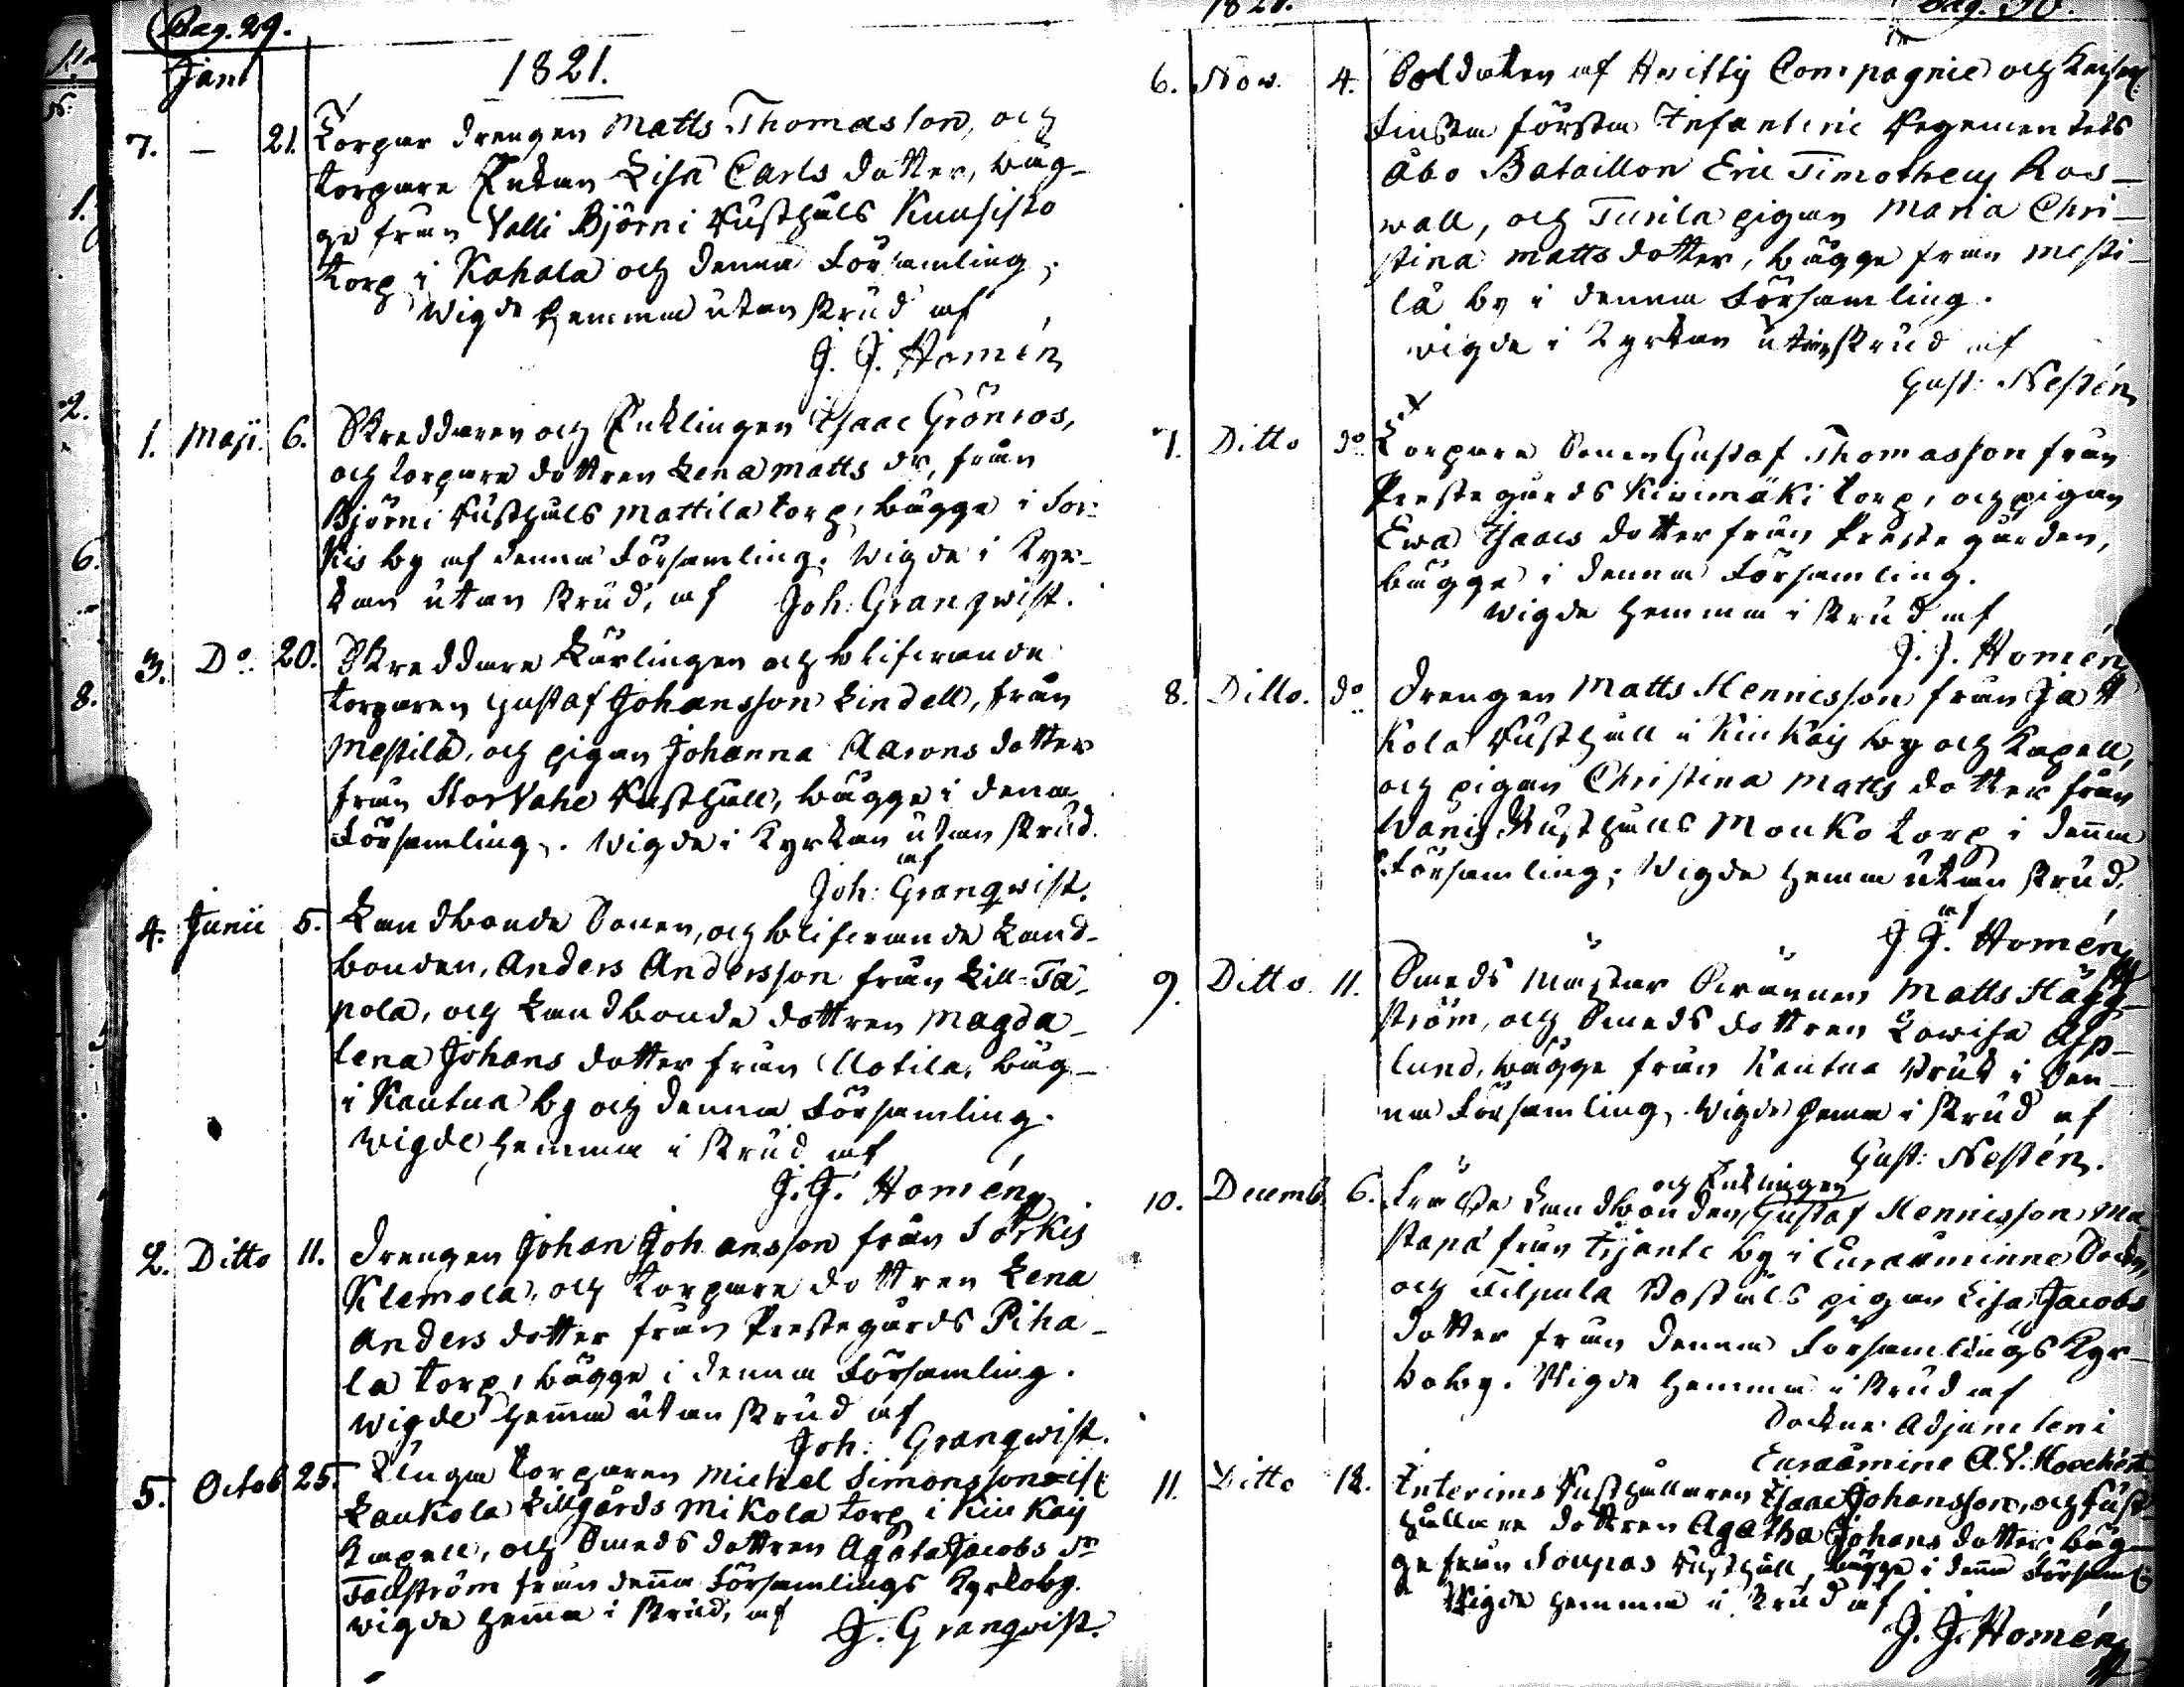 Pag. 29.
Janr 1821.
7. — 21. Torpar drengen Matts Thomasson, och
torpare Enkan Lisa Carls dotter, båg-
ge från Valli Björni Rusthålls Kuusisto
torp i Kahala och denna Församling,
Wigde hemma utan skrud af
J. J. Homén
1. Maji. 6. Skreddaren och Enklingen Isaac Grönroos,
och torpare dottren Lena Matts dr, från
Björni Rusthålls Mattila torp, bägge i Sor-
kis by af denna Församling. Wigde i Kyr-
kan utan skrud, af Joh: Granqwist.
3. Do. 20. Skreddare Lärlingen och blifvande
torparen Gustaf Johansson Lindell, från
Mestilä, och pigan Johanna Aarons dotter
från Stor Vahe Rusthåll, bägge i denna
Församling. Wigde i Kyrkan utan skrud.
af
Joh: Granqwist.
4. Junii 5. Landbonde Sonen, och blifvande Land-
bonden, Anders Andersson från Lill-Ta-
pola, och Landbonde dottren Magda-
lena Johans dotter från Uotila, bäg-
i Kautua by och denna Församling.
Wigde hemma i skrud af
J. J. Homén
2. Ditto 11. Drengen Johan Johansson från Sorkis
Klemola, och torpare dottren Lena
Anders dotter från Prestegårds Piha-
la torp, bägge i denna Församling.
Wigde hemma utan skrud af
Joh: Granqwist.
5. Octob 25. Unga torparen Michel Simonsson ifr
Laukola Lillgårds Mikola torp i Kiukais
Kapell, och Smeds dottren Agata Jacobs dr
Fallström från denna Församlings Kyrkoby.
Wigde hemma i skrud, af J. Granqwist.
1821. Pag. 30.
6. Nov. 4. Soldaten af Compagnie och Kejserl.
Finska första Infanterie Regementets
Åbo Bataillon Eric Timotheus Ros-
wall, och Turila pigan Maria Chri-
stina Matts dotter, bägge från Mesti-
lä by i denna Församling.
Wigde i Kyrkan utan skrud af
Gust: Nestén
7. Ditto do Torpare Sonen Gustaf Thomasson från
Prestegårds Kivimäki torp, och pigan
Ewa Isaacs dotter från Prestegården,
bägge i denna Församling.
Wigde hemma i skrud af
J. J. Homén
8. Ditto. do Drengen Matts Hennicsson från Jaa
Kola Rusthåll i Kiukais by och Kapell,
och pigan Christina Matts dotter från
Wanis Rusthålls Mouko torp i denna
Församling; Wigde hemma utan skrud.
af
J. J. Homén
9. Ditto. 11. Smeds Mäster Svennen Matts Hägg-
ström, och Smeds dottren Lowisa Asp-
lund, bägge från Kautua Bruk i den-
na Församling. Wigde hemma i skrud af
Gust: Nestén.
10. Decemb. 6. Landbonden, och Enklingen Gustaf Hennisson Ma-
stapa från Irjante by i Euraåminne Sockn,
och Filpula Boställs pigan Lisa Jacobs
dotter från denna Församlings Kyr-
koby. Wigde hemma i skrud af
Sockne Adjuncten i
Euraåmine A. V.
11. Ditto 12. Interims Rusthållaren Isaac Johansson, och Rust-
hållare dottren Agatha Johans dotter, bäg-
ge från Soupas Rusthåll, bägge i denna Församl:
Wigde hemma i skrud af
J. J. Homén